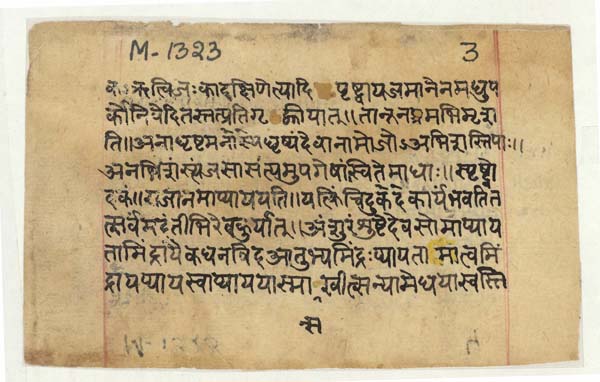 M-1323 3
कऋत्विजःकादक्षिणेत्यादि पृष्ट्वायजमानेनमधुप
र्कोनिवेदितस्तत्प्रतिगृ ह्णीयात्॥तानूनप्त्रमभिमृश
ति॥अनाधृष्टमनाधृष्यंदेवानामोजोऽअभिशस्तिपाः॥
अनभिशस्त्यंजसासत्यमुपगेषांस्वितेमाधाः॥स्पृष्ट्वो
दकं॥राजानमाप्याययति॥यत्किंचिदुदकेदेकार्यंभवतित
त्सर्वंमदंतीभिरेवकुर्यात्॥अंशुरंशुष्टेदेवसोमाप्याय
तामिंद्रायैकधनविदआतुभ्यमिंद्रःप्यायता मात्वमिं
द्रायप्यायस्वाप्याययास्मा न्सखीन्सन्यामेधयास्वस्ति
न्स